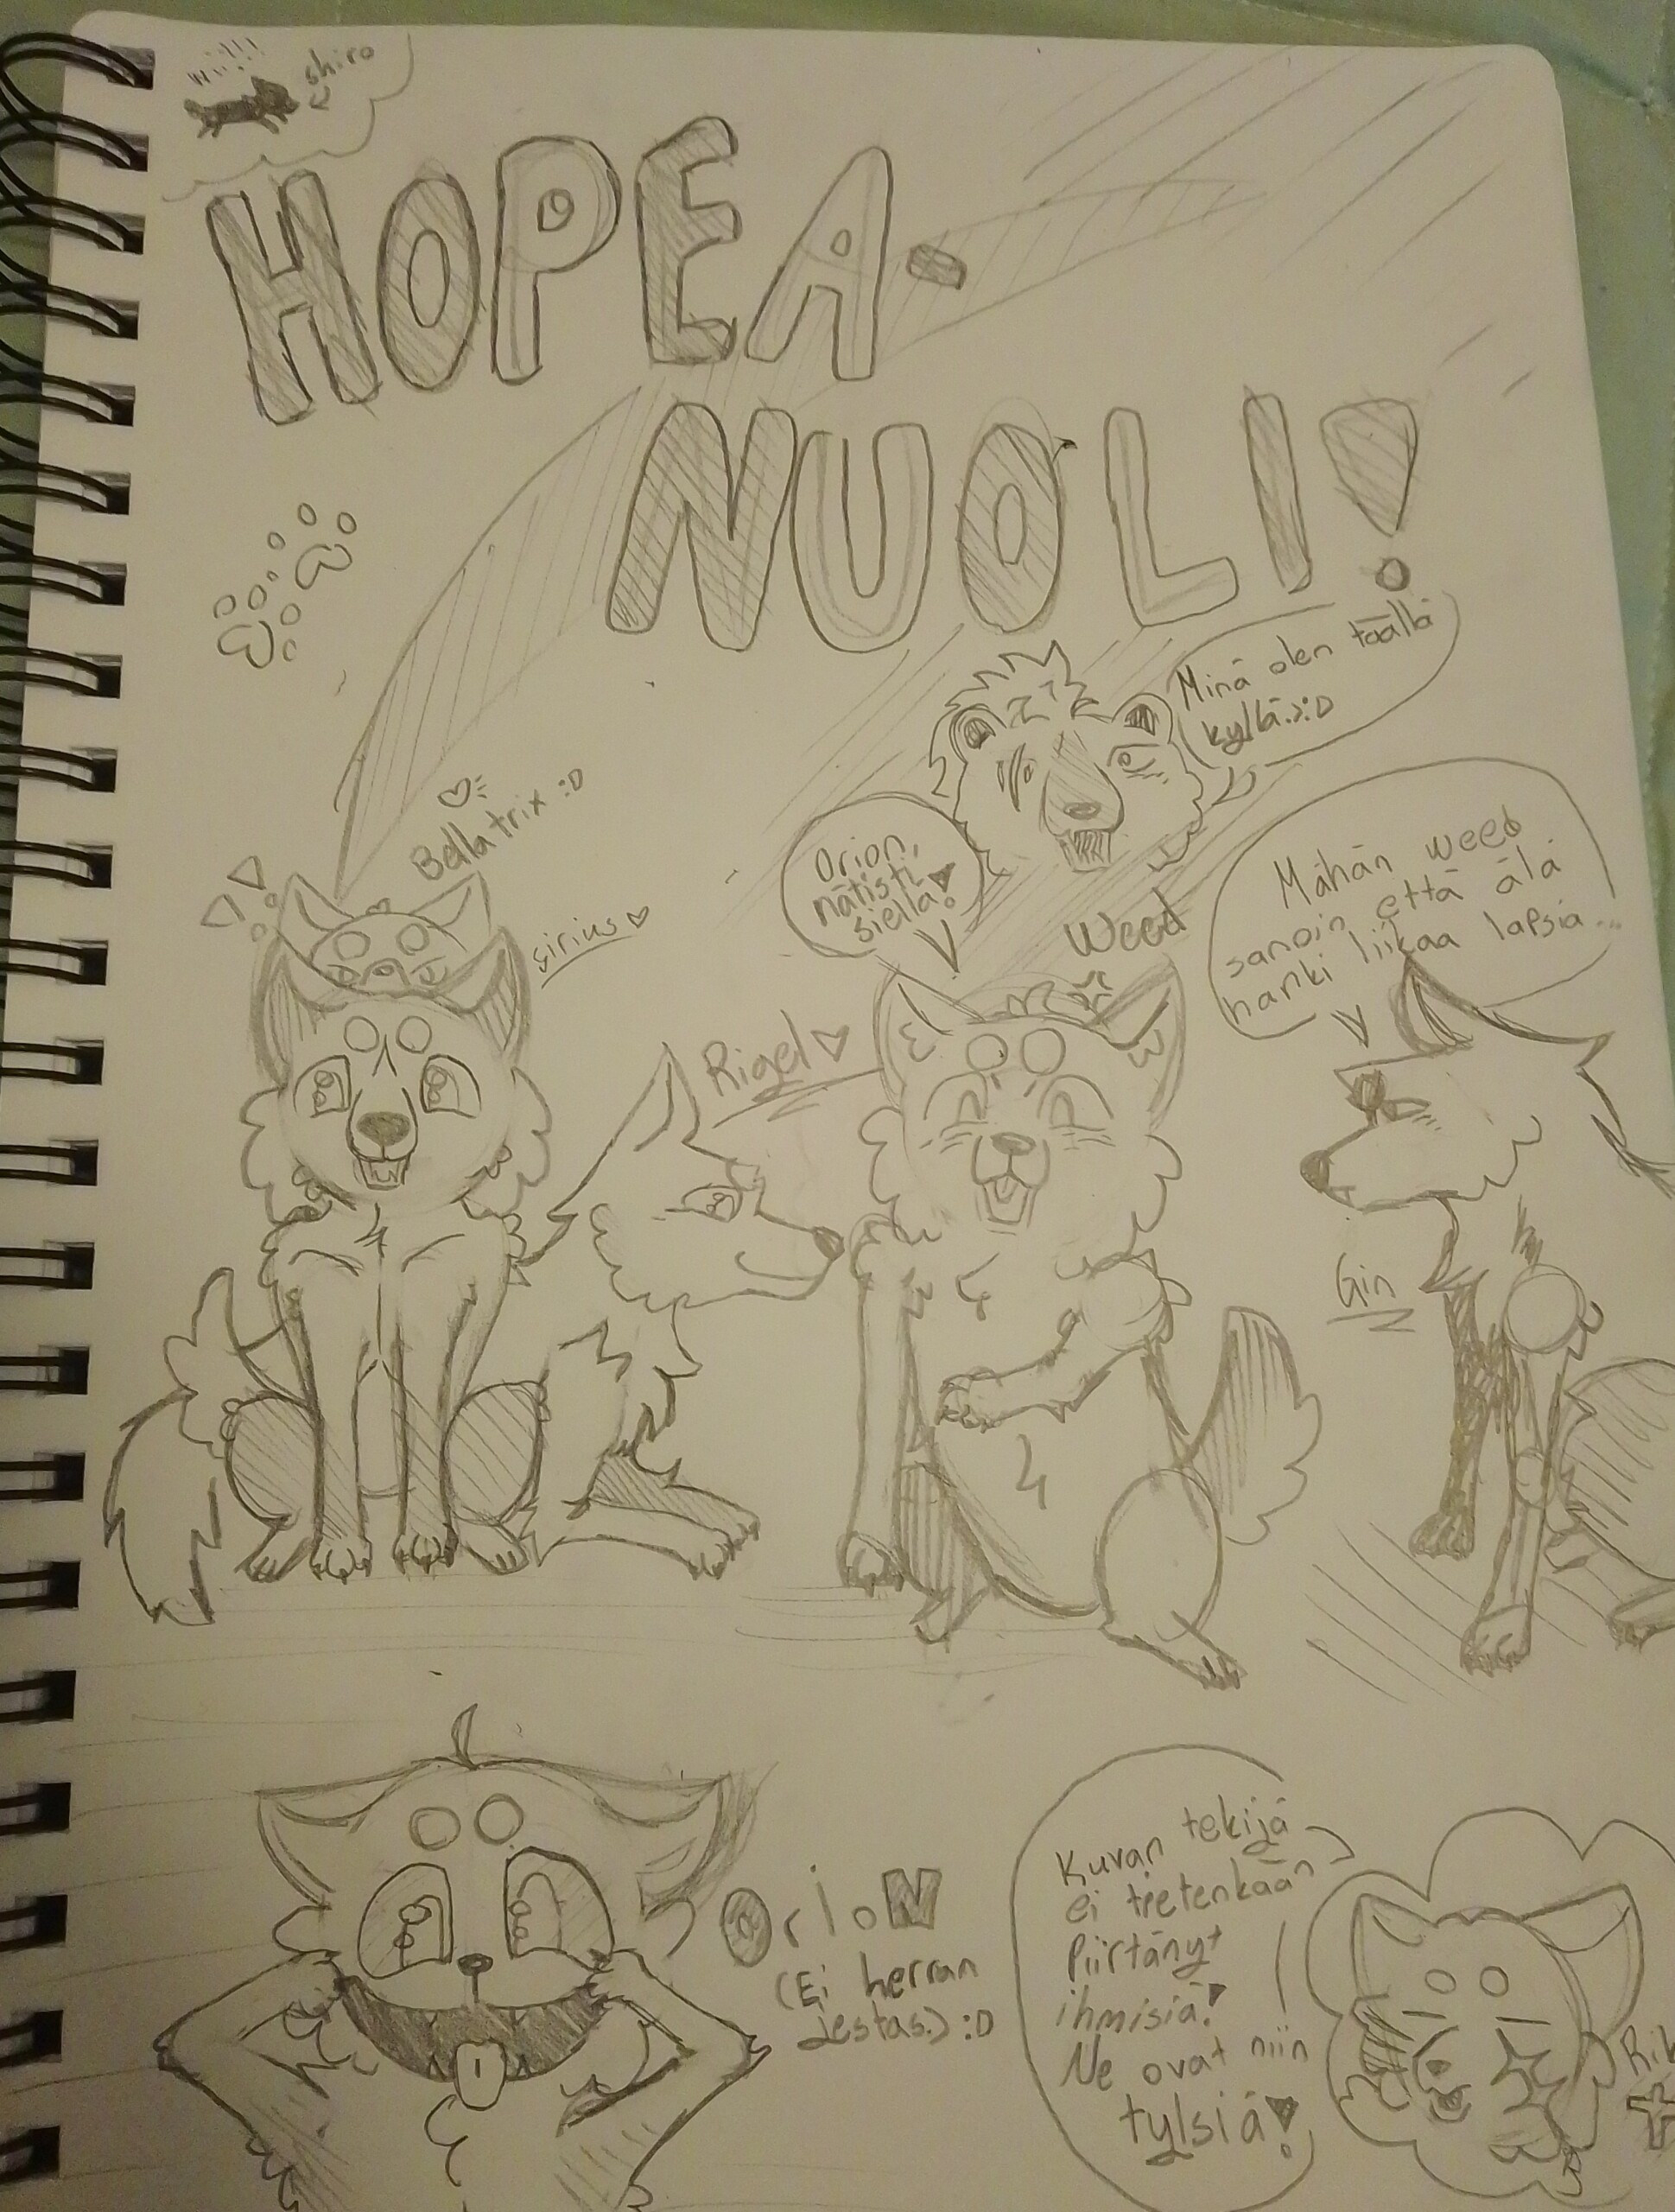 wii!!!
shiro
HOPEA-
NUOLI!
Minä olen täällä
kyllä. >:D
Bellatrix :D
Orion,
nätisti
siellä!
Mähän weed
sanoin että älä
hanki liikaa lapsia...
sirius
Weed
Rigel
Gin
Orion
(Ei herran
Jestas.) :D
Kuvan tekijä
ei tietenkään
Piirtänyt
ihmisiä!
Ne ovat niin
tylsiä!
Rik